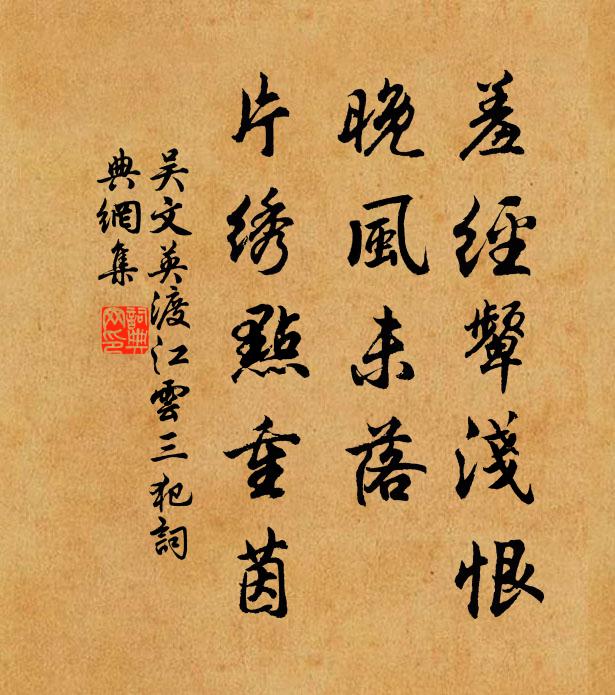 羞經顰淺恨
晚風未落
片綉點重茵
吴文英渡江雲三犯詞
典網集
詞典
网印